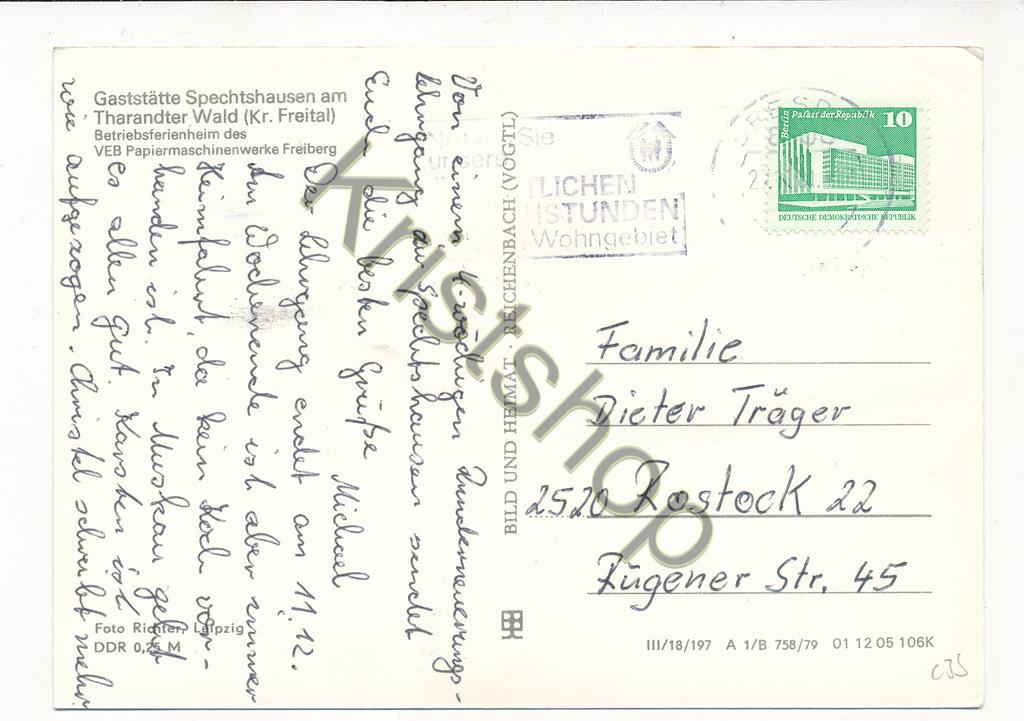 Gaststätte Spechtshausen am
Tharandter Wald (Kr. Freital)
Betriebsferienheim des
VEB Papiermaschinenwerke Freiberg
Von einem 4-wöchigen Runderneuerungs-
lehrgang aus Spechtshausen sendet
Euch die besten Grüße
Michael
Der Lehrgang endet am 11.12.
Am Wochenende ist aber immer
Heimfahrt, da kein Koch vor-
handen ist. In Muskau geht
es allen gut. Karsten ist
wie aufgezogen. Christel schreibt mehr
Foto Richter, Leipzig
DDR 0,25 M
BILD UND HEIMAT · REICHENBACH (VOGTL)
Nutzen Sie
unsere
TLICHEN
HSTUNDEN
Wohngebiet
DRESD
Berlin
Palast der Republik
10
DEUTSCHE DEMOKRATISCHE REPUBLIK
Familie
Dieter Träger
2520 Rostock 22
Rügener Str. 45
III/18/197 A 1/B 758/79 01 12 05 106K
c35
Kristshop